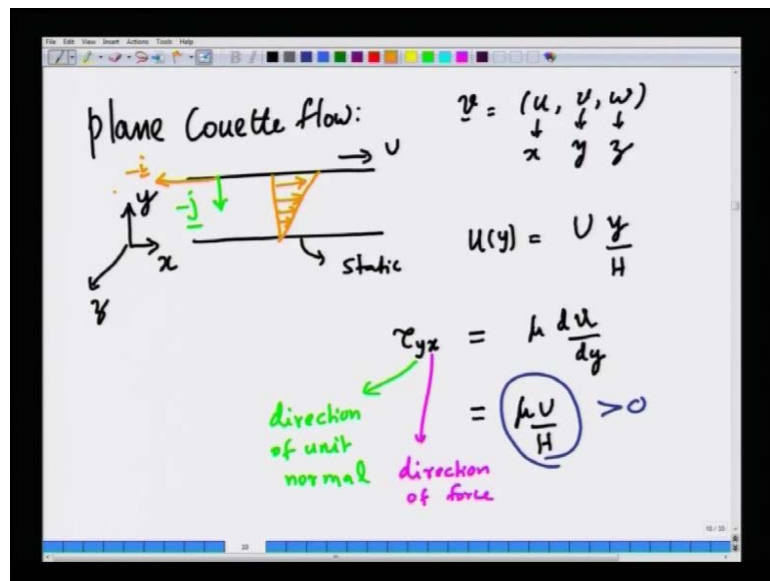 File Edit View Insert Actions Tools Help
plane Couette flow:
v = (u, v, w)
x y z
U
-i
-j
y
x
z
static
u(y) = U y/H
τyx = μ du/dy
= μU/H >0
direction of unit normal
direction of force
10